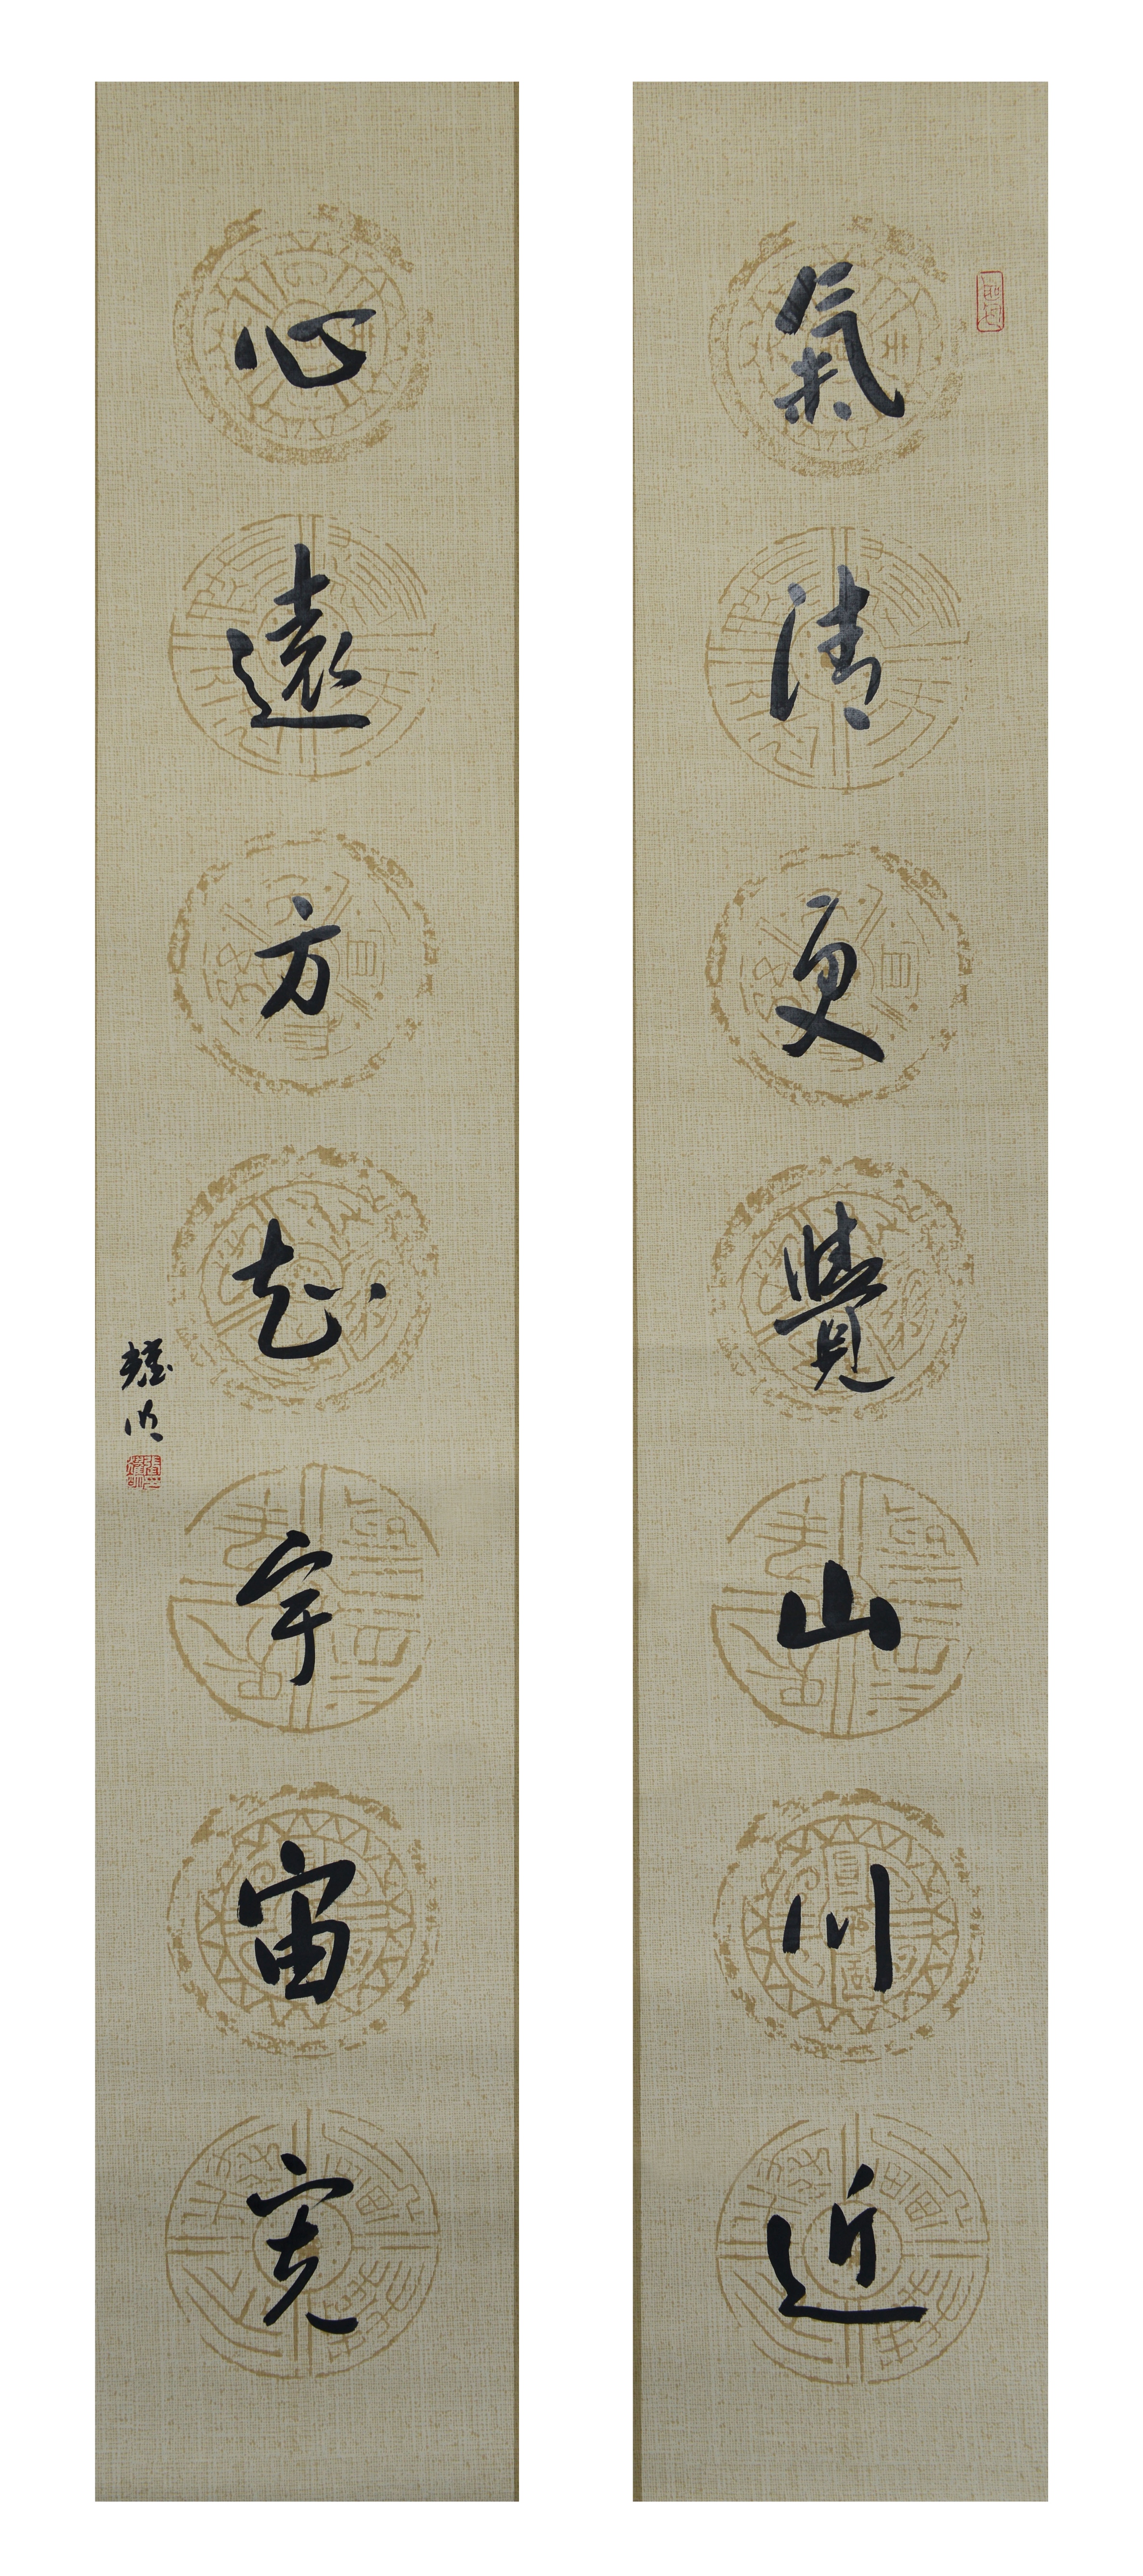 氣清更覺山川近
心遠方知宇宙寬
耀明